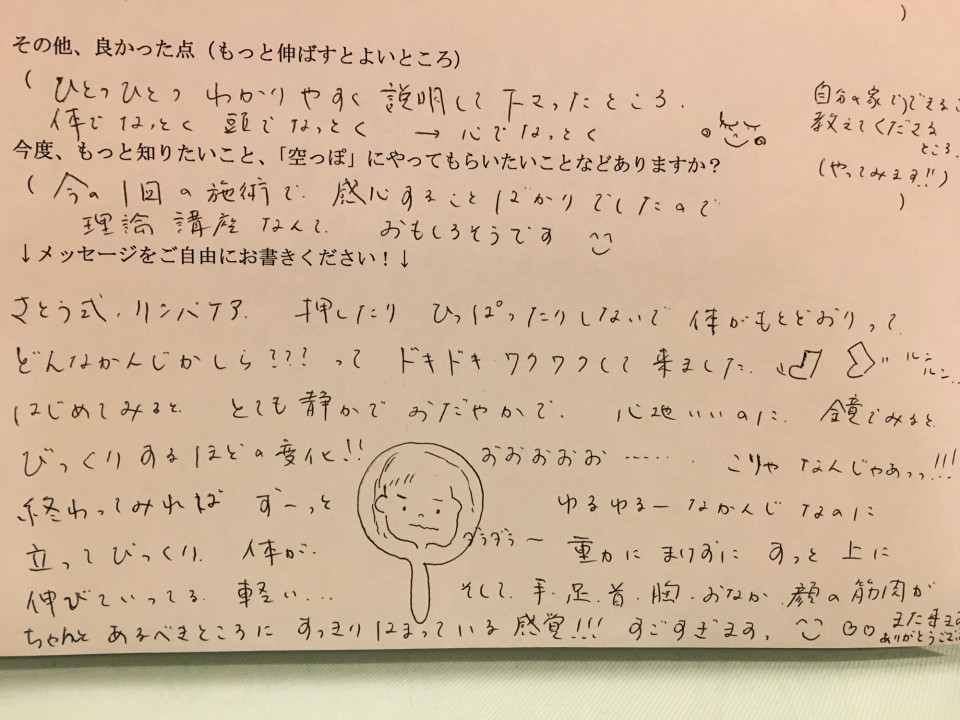 )
その他、良かった点（もっと伸ばすとよいところ）
( ひとつひとつ わかりやすく 説明して下さったところ.
体でなっとく 頭でなっとく → 心でなっとく
自分の家で
教えてくださる
ところ.
(やってみます!!)
今度、もっと知りたいこと、「空っぽ」にやってもらいたいことなどありますか？
( 今の1回の施術で. 感心することばかりでしたので
)
理論講座なんて. おもしろそうです
↓メッセージをご自由にお書きください！↓
さとう式.リンパケア. 押したり ひっぱったりしないで 体がもとどおりって.
どんなかんじかしら??? って ドキドキワクワクして来ました. ルン
ルン..
はじめてみると. とても静かで おだやかで. 心地いいのに. 鏡でみると.
びっくりするほどの変化!! おおおおお ‥‥‥. こりゃ なんじゃあっっ!!!
終わってみれば ずーっと ゆるゆるーなかんじなのに
ダラダラ〜
立ってびっくり. 体が. 重力にまけずに すっと上に
伸びていってる. 軽い... そして.手.足.首.胸.おなか.顔の筋肉が
ちゃんと あるべきところに すっきりはまっている感覚!!! すごすぎます.
また来ます